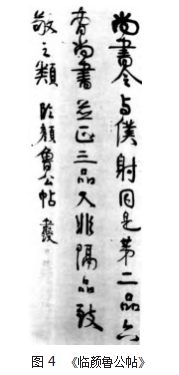 尚书令与僕射同是第二品六
曹尚書並正三品又非隔品致
敬之類 臨顏魯公帖
图4 《临颜鲁公帖》